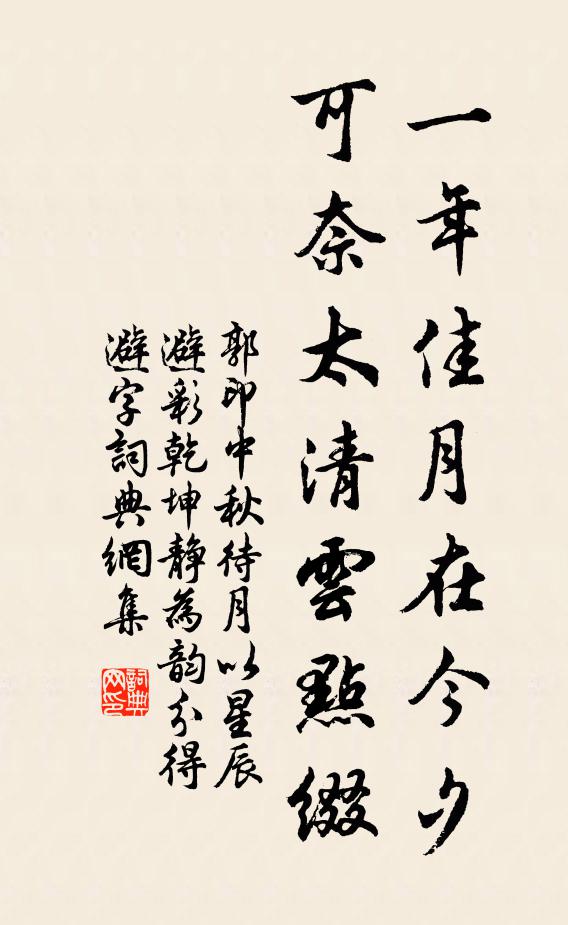 一年佳月在今夕
可奈太清雲點綴
郭印中秋待月以星辰
避彩乾坤靜為韵分得
避字詞典網集
詞典
网印